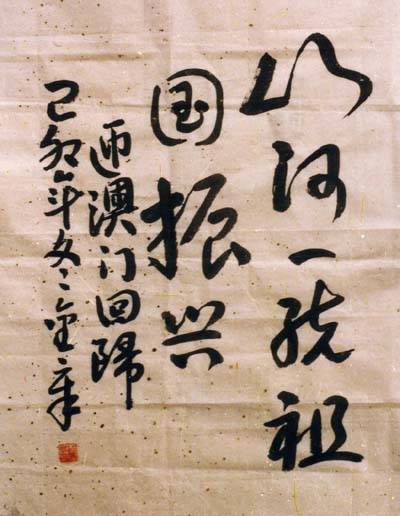 山河一统祖
国振兴
迎澳门回歸
己卯年冬